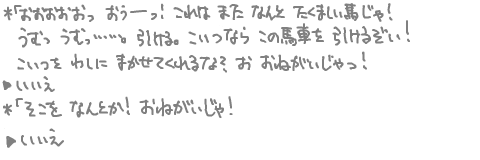 *「おおおおおっ おぅーっ! これは また なんと たくましい馬じゃ!
うむっ うむっ……。引ける。こいつなら この馬車を 引けるぞい!
こいつを わしに まかせてくれるな? お おねがいじゃっ!
▶いいえ
*「そこを なんとか! おねがいじゃ!
▶いいえ